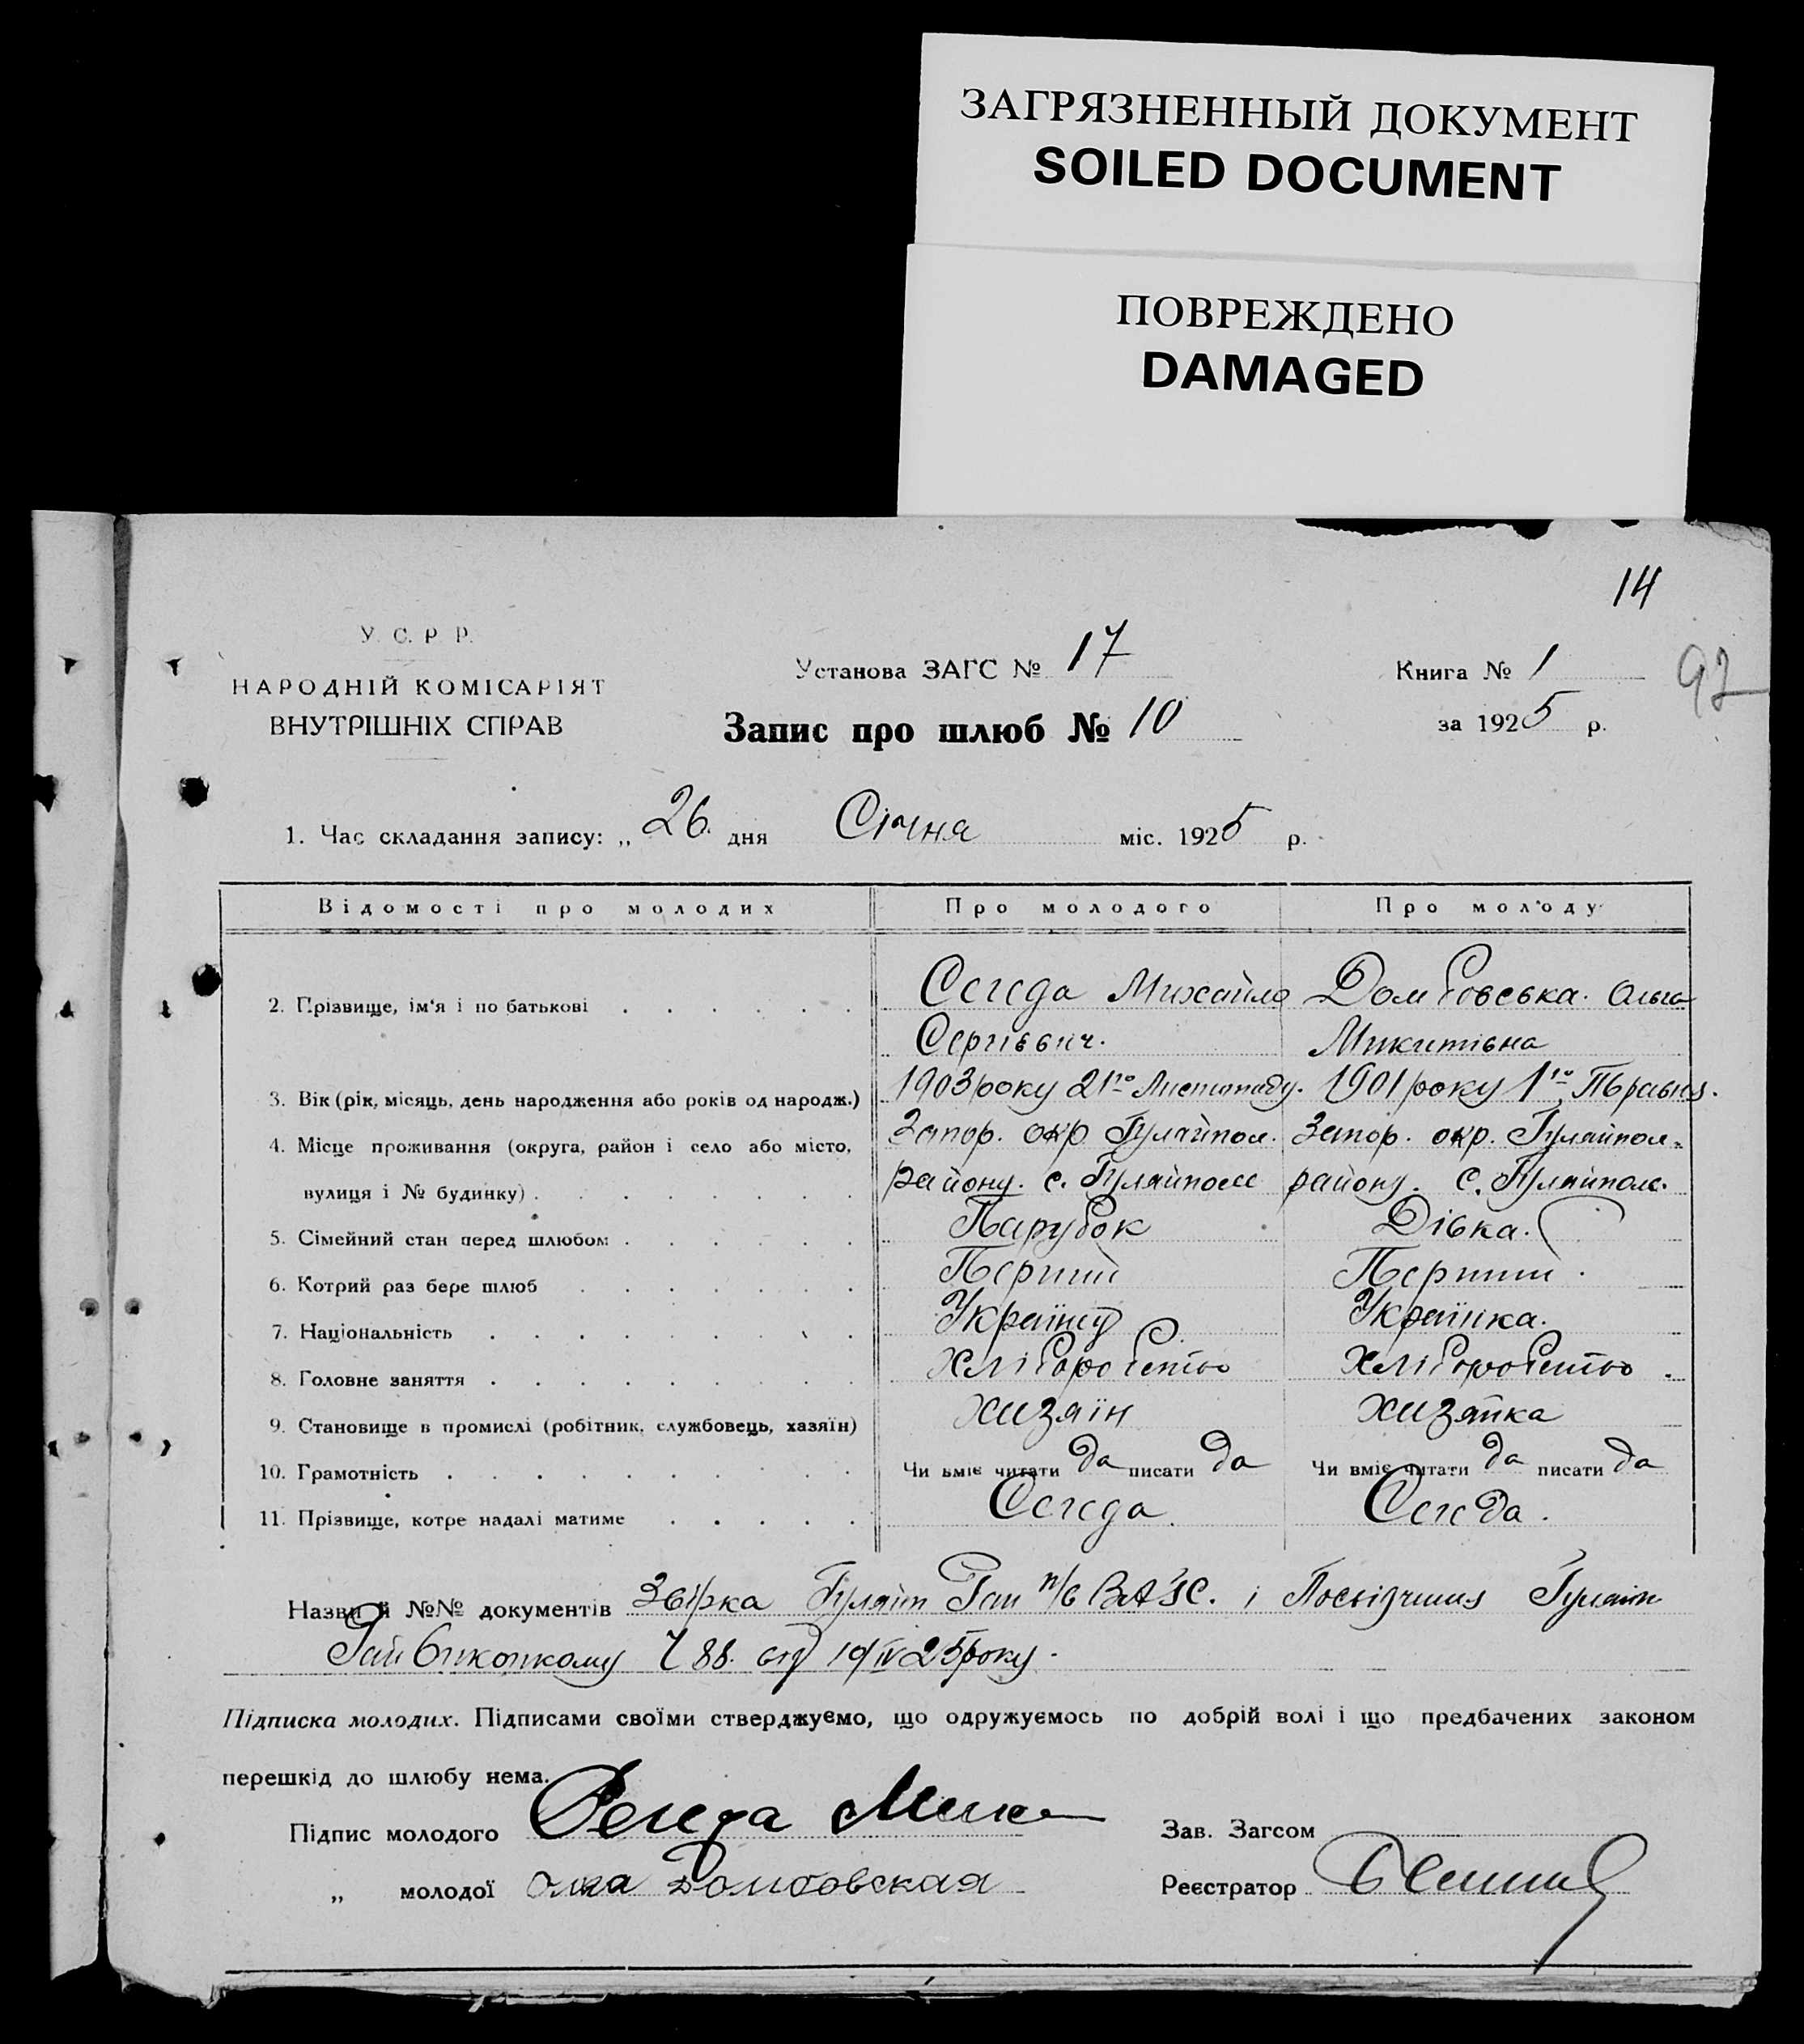 ЗАГРЯЗНЕННЫЙ ДОКУМЕНТ
SOILED DOCUMENT
ПОВРЕЖДЕНО
DAMAGED
14
92
У. С. Р. Р.
НАРОДНІЙ КОМІСАРІЯТ
ВНУТРІШНІХ СПРАВ
Установа ЗАГС № 17
Запис про шлюб № 10
Книга № 1
за 1925 р.
1. Час складання запису: „ 26 дня Січня міс. 1925 р.
Відомості про молодих Про молодого Про молоду
2. Прізвище, ім'я і по батькові Сегеда Михайло Домбовська. Ольга
Сергієвич. Микитівна
3. Вік (рік, місяць, день народження або років од народж.) 1903 року 21го Листопаду. 1901 року 1го Травня.
4. Місце проживання (округа, район і село або місто, Запор. окр. Гуляйпол. Запор. окр. Гуляйпол.
вулиця і № будинку) району. с. Гуляйполе району. с. Гуляйполе.
5. Сімейний стан перед шлюбом Парубок Дівка.
6. Котрий раз бере шлюб Перший Перший.
7. Національність Українец Українка.
8. Головне заняття Хліборобство Хліборобство.
9. Становище в промислі (робітник, службовець, хазяїн) хазяїн хазяйка
10. Грамотність Чи вміє читати да писати да Чи вміє читати да писати да
11. Прізвище, котре надалі матиме Сегеда. Сегеда.
Назви й №№ документів Гуляйп Рай п/б ЗАГС. і Посвідчиния Гуляйп
Рай 88. від 25 року.
Підписка молодих. Підписами своїми стверджуємо, що одружуємось по добрій волі і що предбачених законом
перешкід до шлюбу нема.
Підпис молодого Сегеда Миха
Зав. Загсом
„ молодої Олга Домбовская
Реєстратор